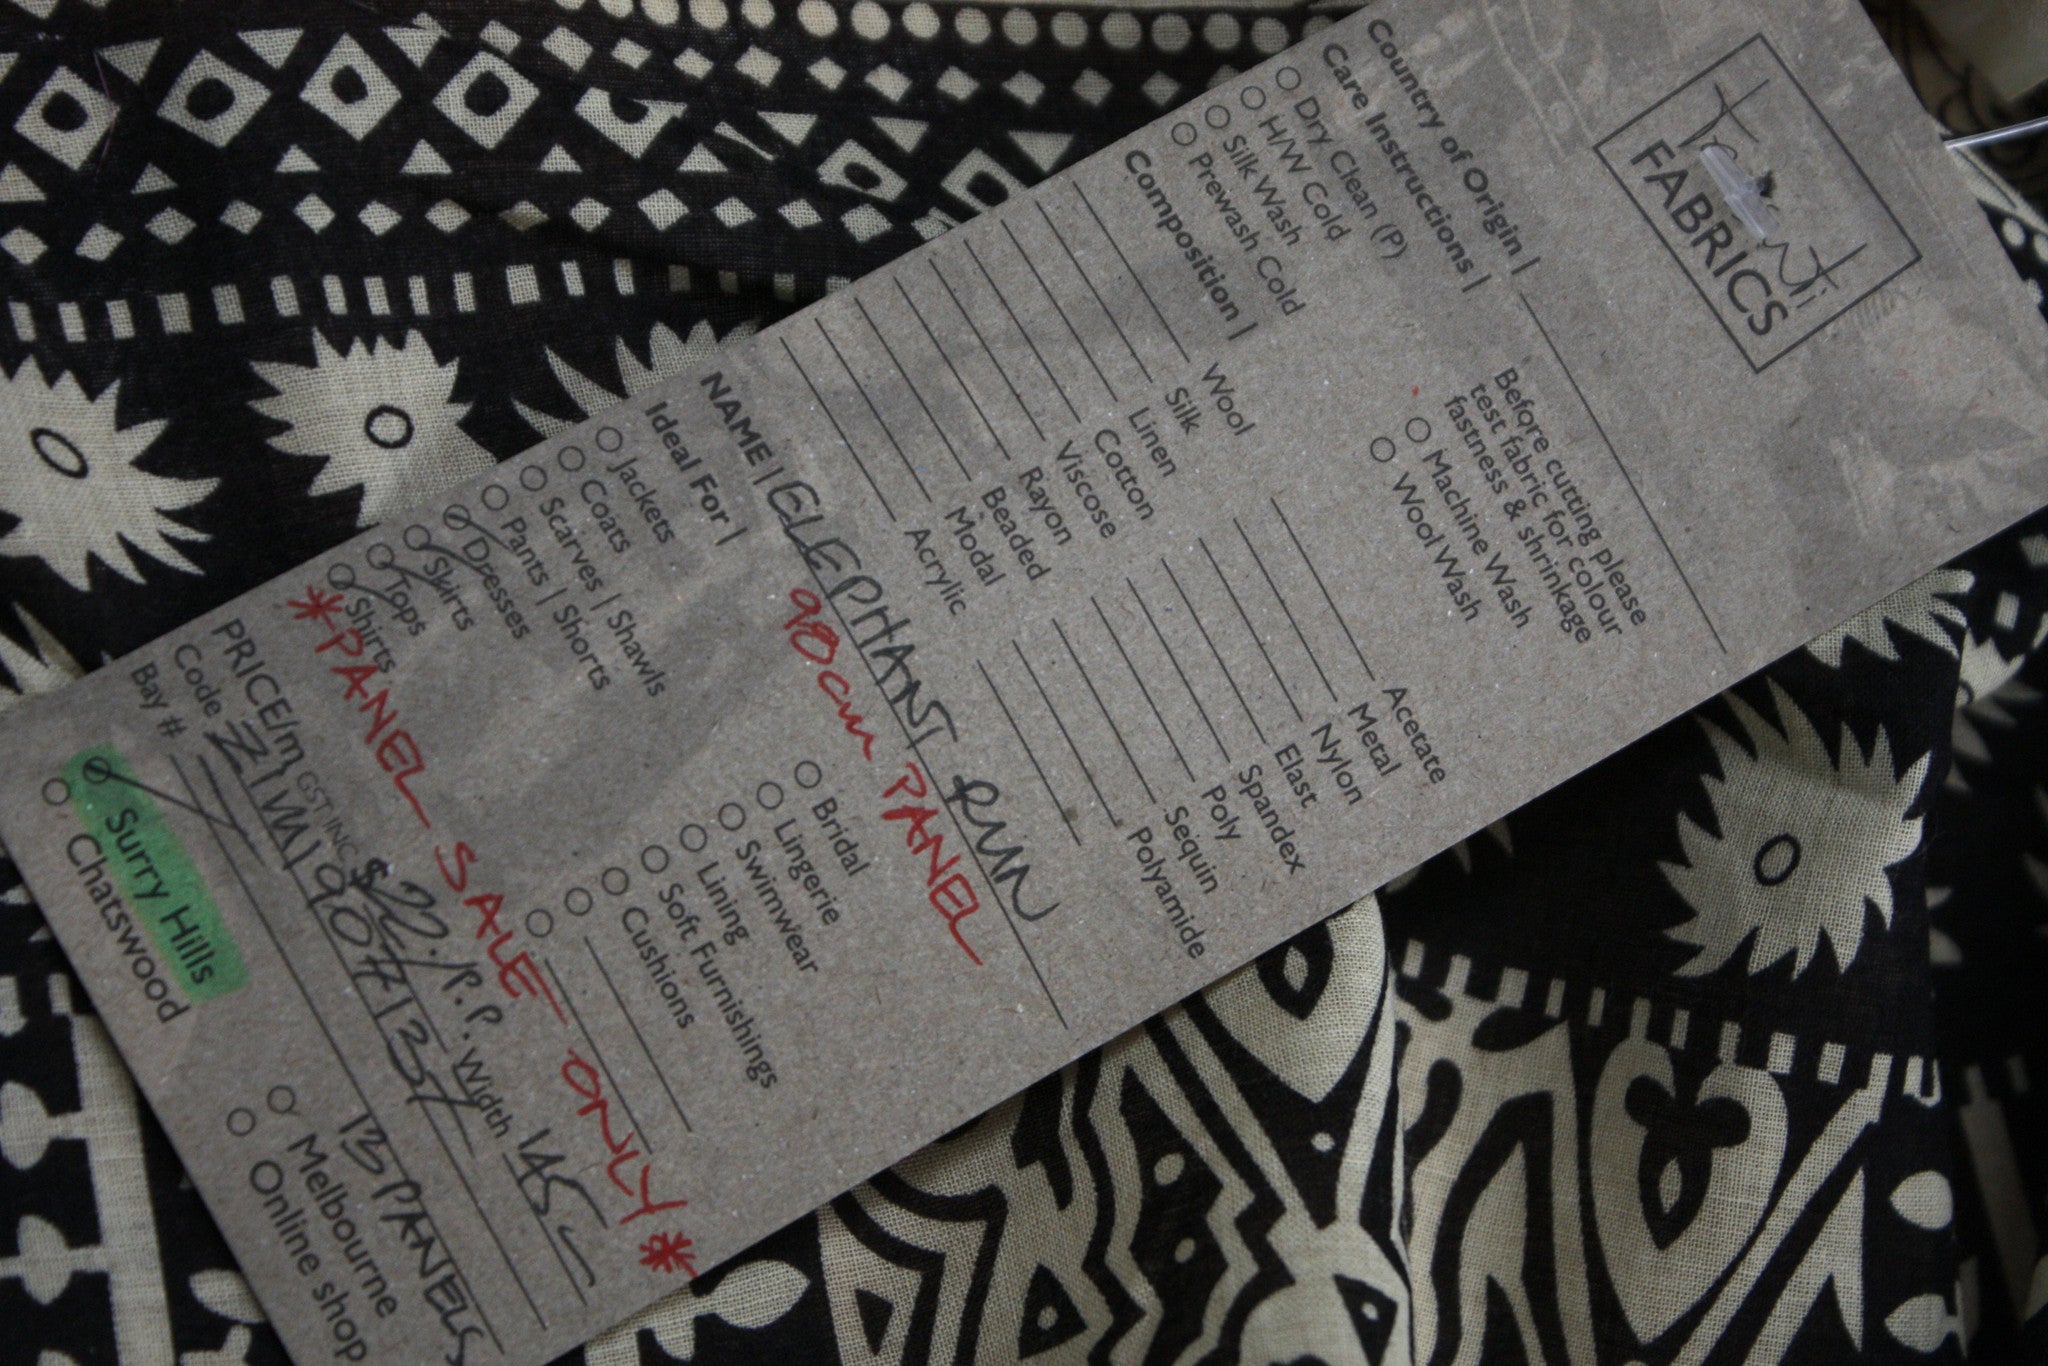 Tessuti
FABRICS
Country of Origin |
Care Instructions |
Dry Clean (P)
H/W Cold
Silk Wash
Prewash Cold
Before cutting please
test fabric for colour
fastness & shrinkage
Machine Wash
Wool Wash
Composition |
Wool
Silk
Linen
Cotton
Viscose
Rayon
Beaded
Modal
Acrylic
Acetate
Metal
Nylon
Elast
Spandex
Poly
Sequin
Polyamide
NAME | ELEPHANT RUN
90cm PANEL
Ideal For |
Jackets
Coats
Scarves | Shawls
Pants | Shorts
Dresses
Skirts
Tops
Shirts
Bridal
Lingerie
Swimwear
Lining
Soft Furnishings
Cushions
*PANEL SALE ONLY*
PRICE/m GST INC $22./P.P. Width 145
Code ZIM1907137
Bay # 13 PANELS
Surry Hills
Chatswood
Melbourne
Online shop